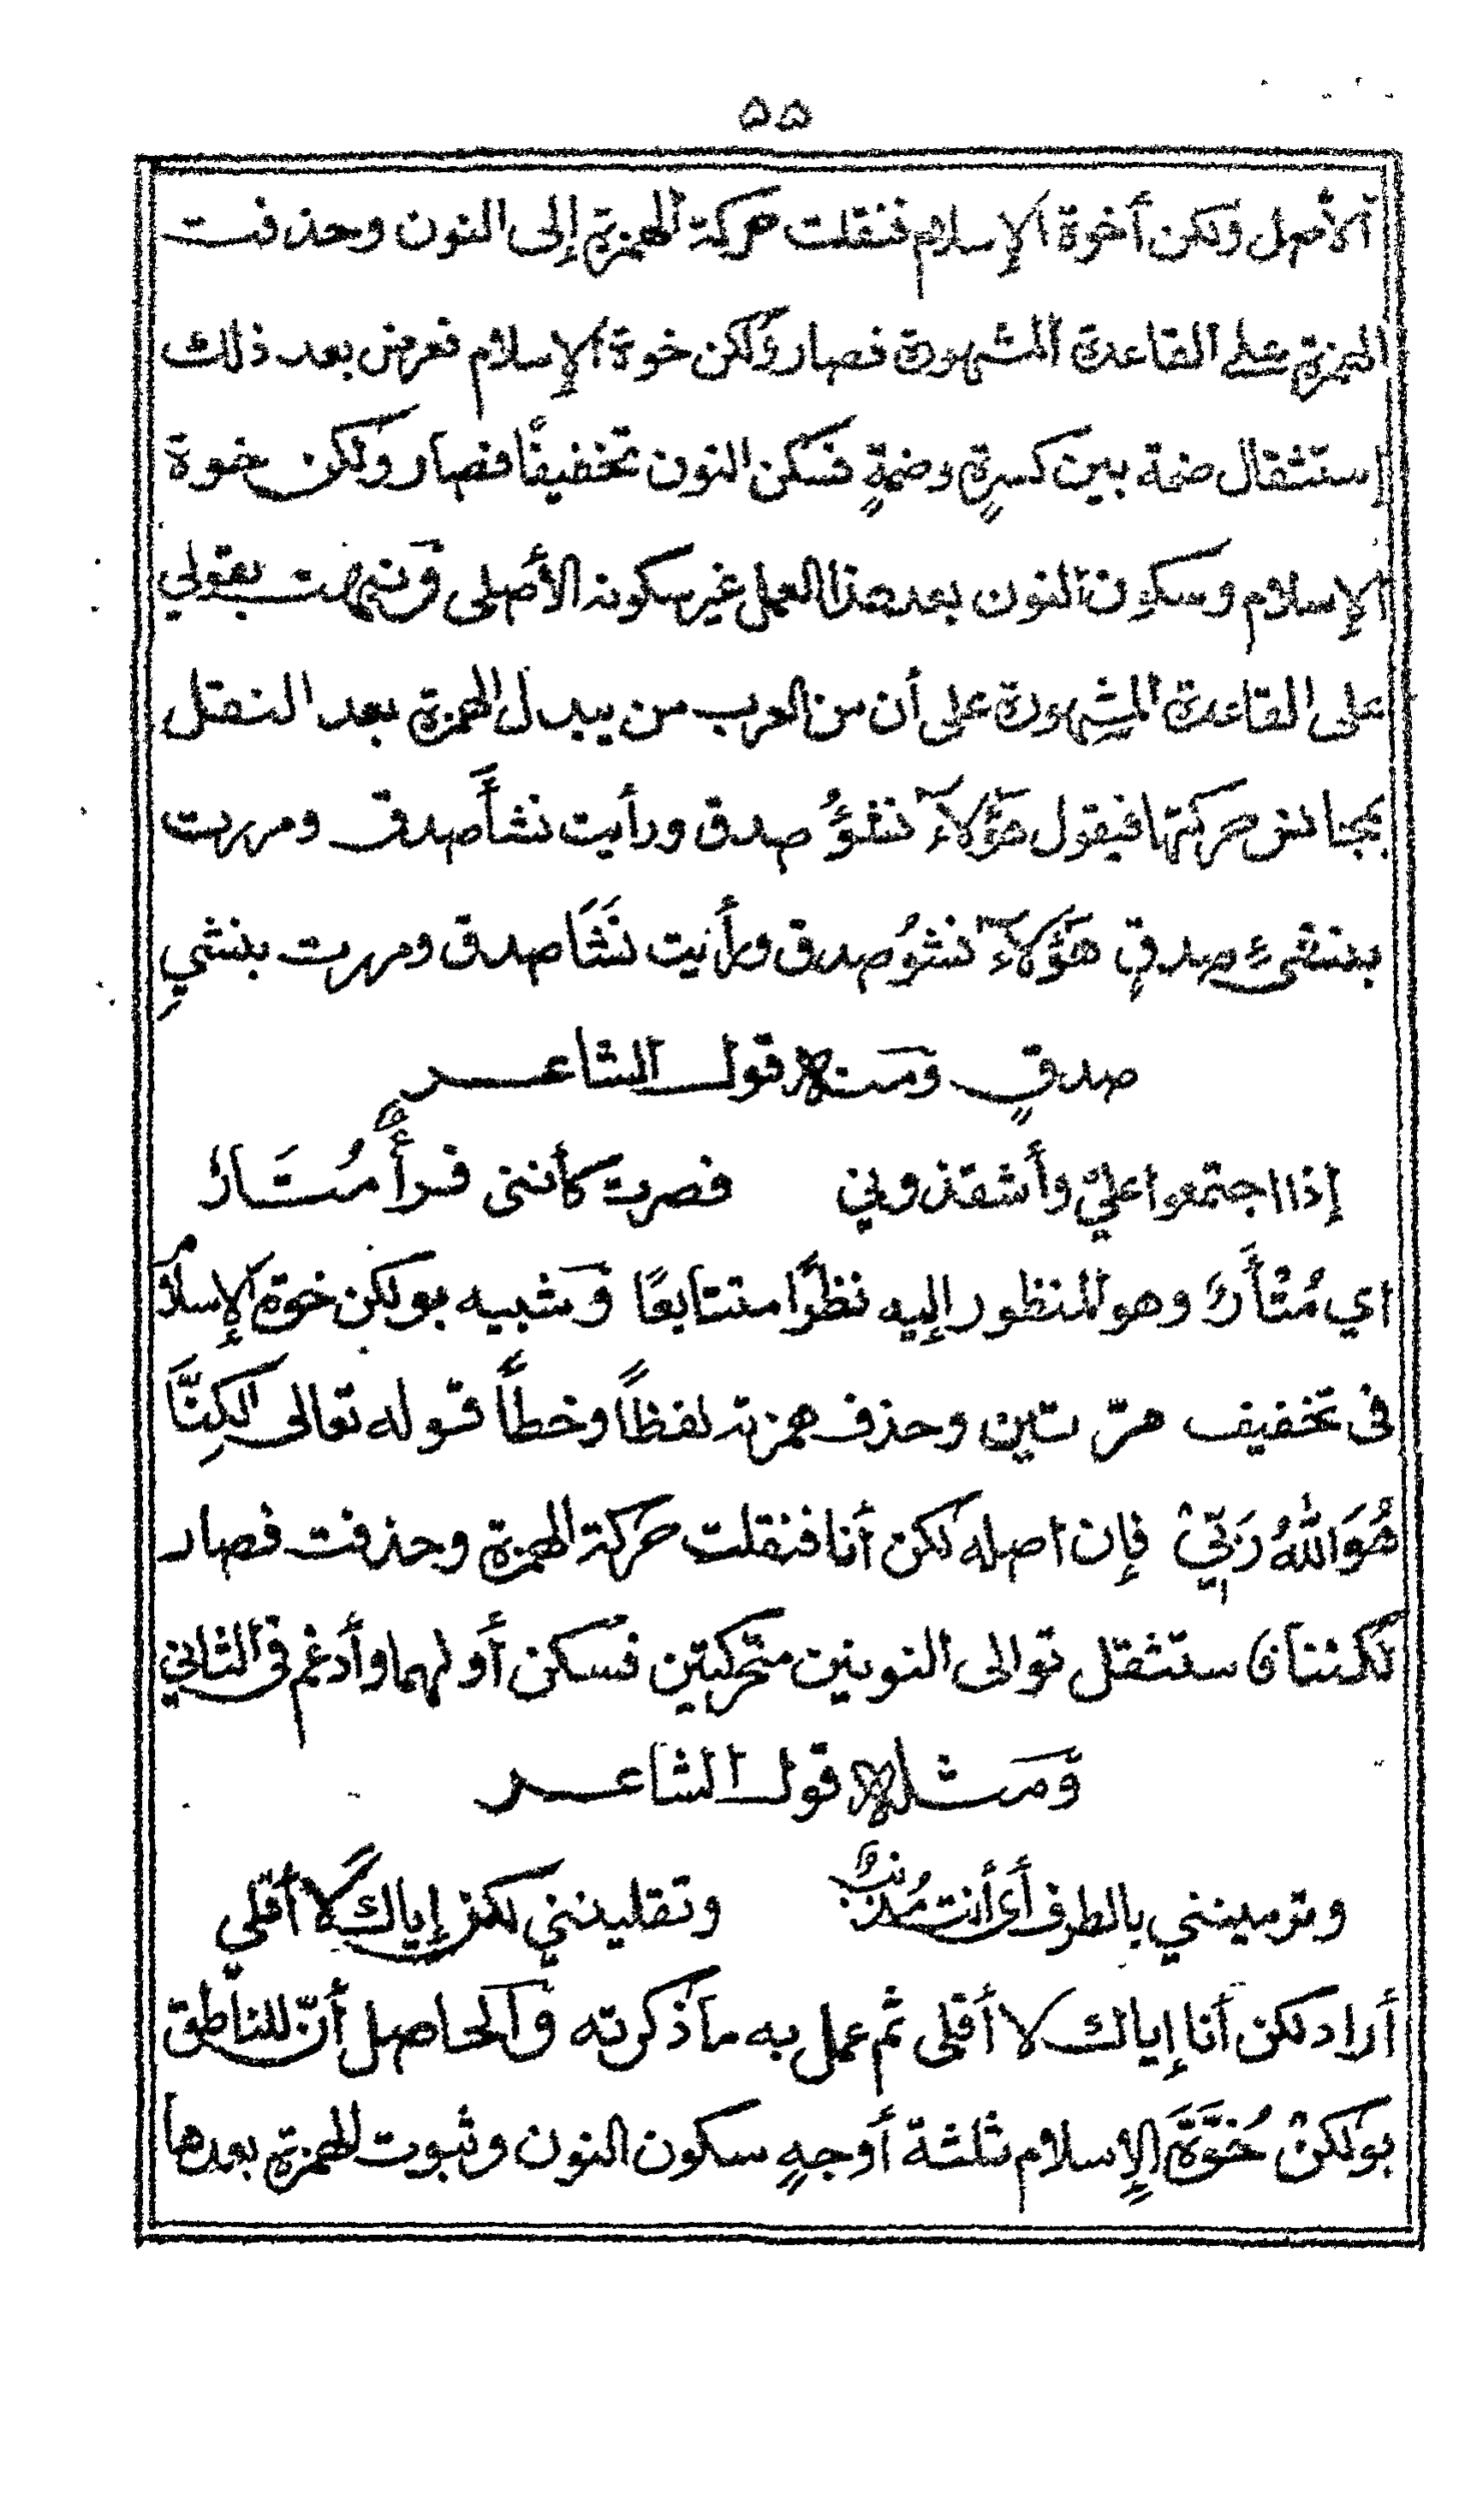 ٥٥
الأصل ولكن أخوة الإسلام فنقلت حركة الهمزة إلى النون وحذفت
الهمزة على القاعدة المشهورة فصار ولكن خوة الإسلام فعرض بعد ذلك
إستثقال ضمة بين كسرةٍ وضمةٍ فسكن النون تخفيفًا فصار ولكن خوة
الإسلام وسكون النون بعد هذا العمل غير سكونه الأصلى ونبهت بقولي
على القاعدة المشهورة على أن من العرب من يبدل الهمزة بعد النقل
بمجانس حركتها فيقول هؤلاء نشؤُ صدق ورأيت نشأَ صدق ومررت
بنشئ صدقٍ هؤلاء نشوُ صدق ورأيت نَشَا صدق ومررت بنشيِ
صدقٍ ومنه قول الشاعر
إذا اجتمعوا عليّ وأشقذوني فصرت كأننى فرأٌ مُتَارُ
اي مُتْأَر وهو المنظور إليه نظرًا متتابعًا وشبيه بولكن خوة الإسلام
فى تخفيف مرّتين وحذف همزته لفظاً وخطأً قوله تعالى لكِنَّا
هُوَ اللهُ رَبِّيْ فإن اصله لكن أنا فنقلت حركة الهمزة وحذفت فصار
لكننا فاستثقل توالى النونين متحركتين فسكن أولهما وأدغم فى الثاني
ومثله قول الشاعر
وترمينني بالطرف أى أنت مُذنبٌ وتقلينني لكنّ إياكِ لا أقلي
أراد لكن أنا إياك لا أقلى ثم عمل به ما ذكرته والحاصل أنّ للناطق
بولكنْ خُوَّةَ الإسلام ثلثة أوجهٍ سكون النون وثبوت الهمزة بعدها